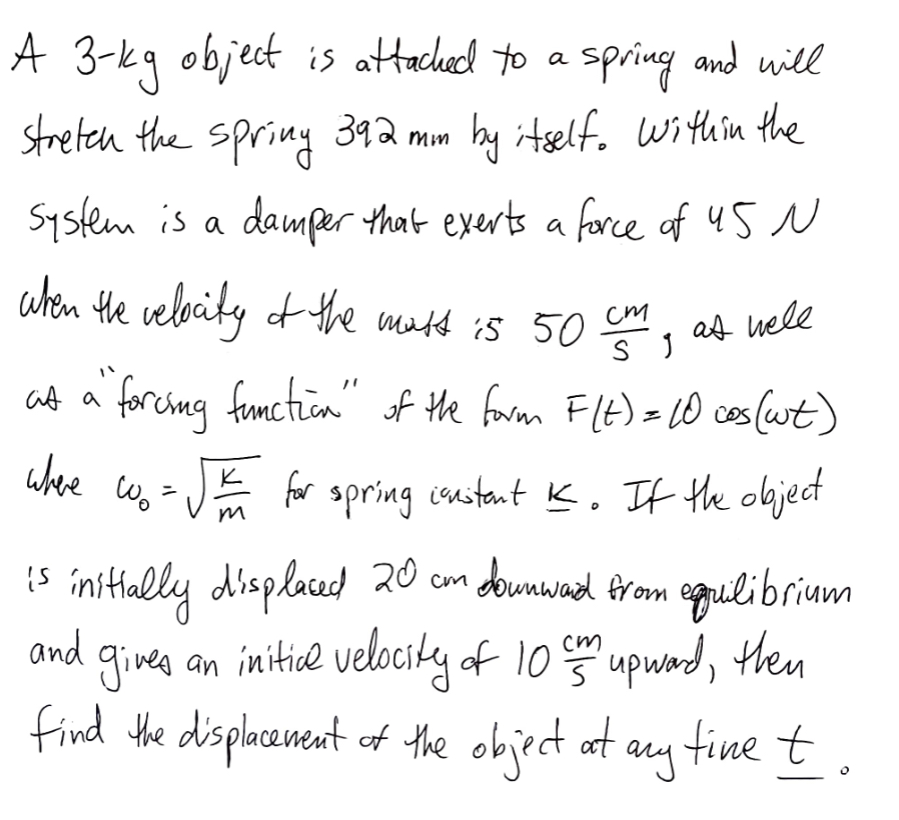 A 3-kg object is attached to a spring and will
stretch the spring 392 mm by itself. Within the
system is a damper that exerts a force of 45 N
when the velocity of the mass is 50 cm/s, as well
as a "forcing function" of the form F(t) = 10 cos(ωt)
where ω₀ = √(K/m) for spring constant K. If the object
is initially displaced 20 cm downward from equilibrium
and gives an initial velocity of 10 cm/s upward, then
find the displacement of the object at any time t.